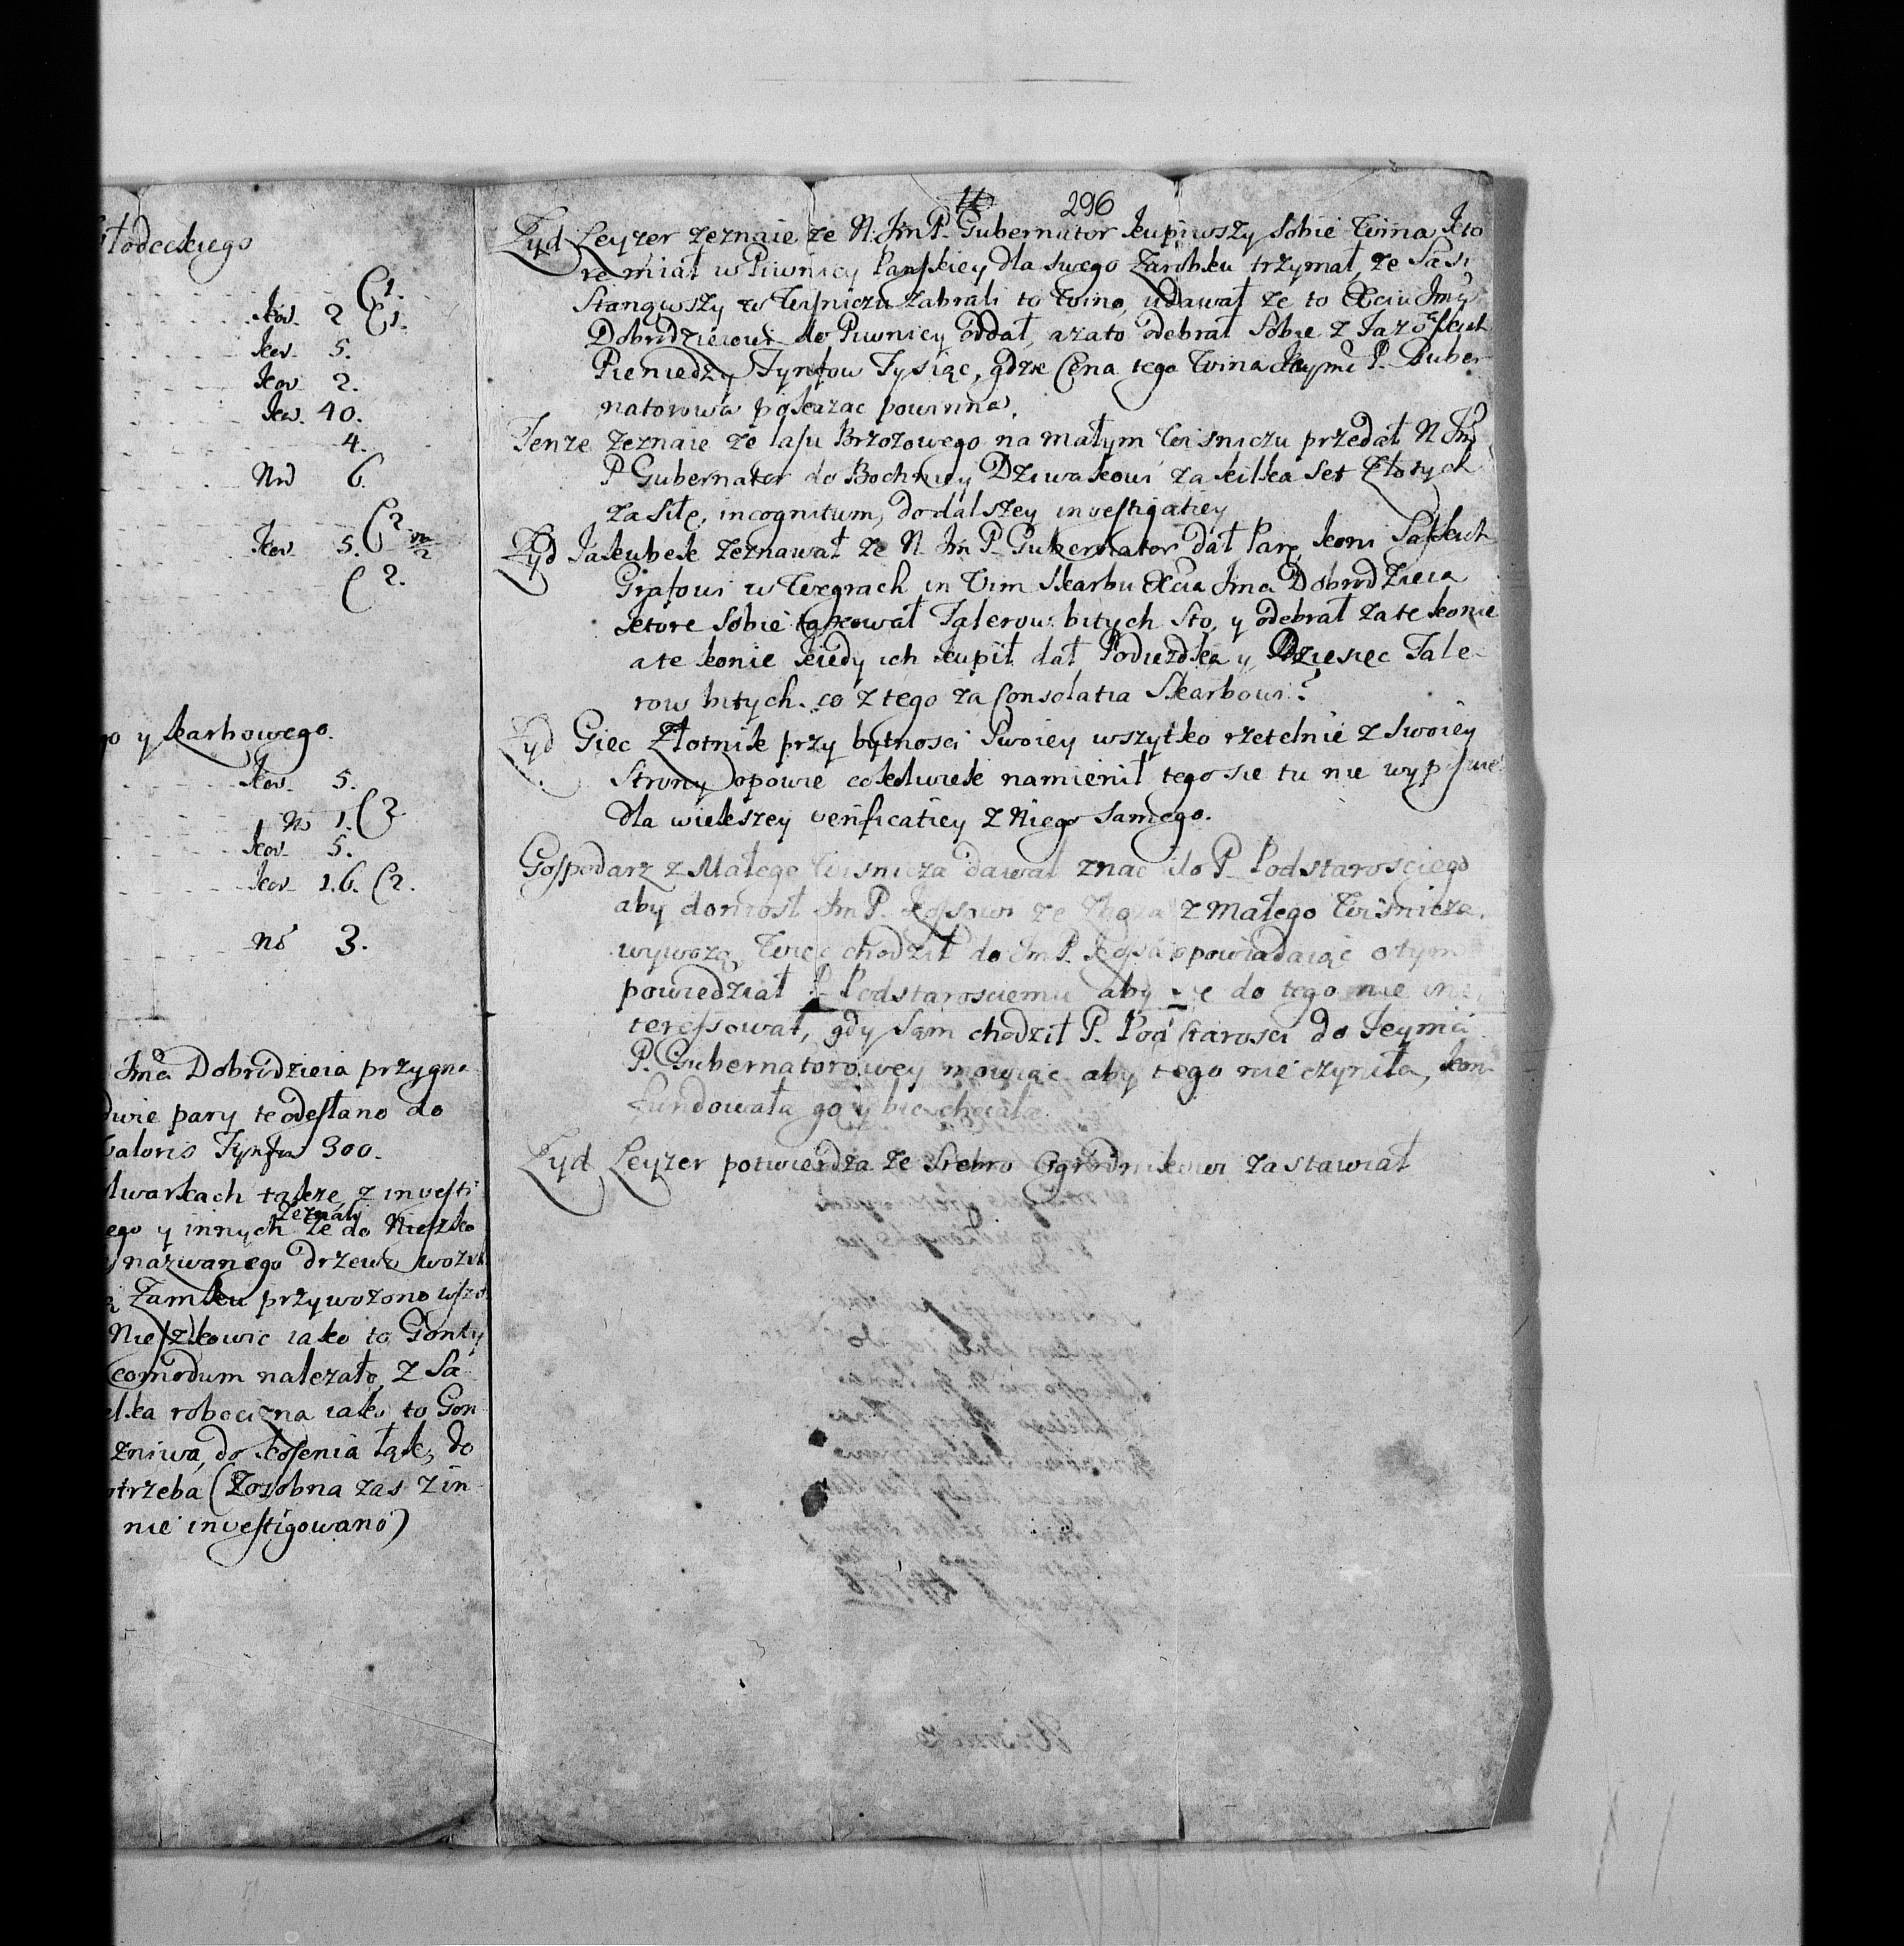 łodeckiego
C1.
kor. 2 C1.
kor. 5.
kor. 2.
kor. 40.
4.
Nro 6.
C2.
kor. 5.
C2.
go y skarbowego.
kor. 5.
No 1. C2.
kor. 5.
kor. 16. C2.
No 3.
Jmci Dobrodzieia przygna
dwie pary te odesłano do
Valoris Tynfa 300.
lwarkach także z investi
zeznali
ego y innych że do Nieszko
nazwanego drzewo wozili
Zamku przywozono wszy
Nieszkowic iako to Gonty
comodum nalezało, z Sa
elka robocizna iako to Gon
zniwa, do koszenia łąk, do
otrzeba (Zosobna zas z in
nie investigowano)
11 296
Zyd Leyzer zeznaie ze N. Jm P. Gubernator kupiwszy sobie Wina kto
re miał w Piwnicy Panskiey dla swego Zarobku trzymał, ze Sasi
Stanąwszy w Wisniczu zabrali to Wino, udawał ze to Xciu Jmci
Dobrodzieiowi do Piwnicy oddał, a zato odebrał Sobie z
Pieniedzy Tynfow Tysiąc, gdzie Cena tego Wina Jeymć P. Guber
natorowa pokazac powinna.
Tenze zeznaie ze lasu Brzozowego na małym Wisniczu przedał N Jm
P Gubernator do Bochniey Dziwakowi za kilka Set Złotych
za siłę, incognitum, do dalszey investigatiey
Zyd Jakubek zeznawał ze N. Jm P. Gubernator dał Parę koni Saskich
Grafowi w Węgrach in Vim Skarbu Xcia Jmci Dobrodzieia
ktore Sobie taxował Talerow bitych Sto, y odebrał za te konie
a te konie kiedy ich kupił dał Podiezdka y Dziesięc Tale
row bitych. co z tego za Consolatia Skarbowi?
Zyd Giec Złotnik przy bytnosci Swoiey wszytko rzetelnie z Swoiey
Strony opowie cokolwiek namienił tego sie tu nie wypisuie
dla wiekszey verificatiey z Niego samego.
Gospodarz z Małego Wisnicza dawał znac do P. Podstarosciego
aby doniosł Jm P. Kossowi ze Zboza z Małego Wisnicza
wywozą, Więc chodził do Jm P. Kossa opowiadaiąc o tym
powiedział P. Podstarosciemu aby sie do tego nie in
teressował, gdy Sam chodził P. Podstarosci do Jeymci
P. Gubernatorowey mowiąc aby tego nie czyniła, kon
fundowała go y bic chciała.
Zyd Leyzer potwierdza ze Srebro Ogrodnikowi zastawiał